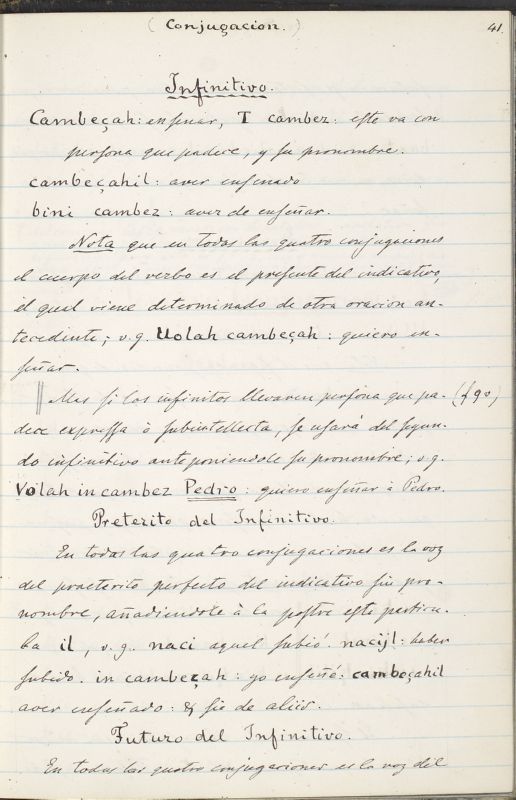 ( Conjugacion. )
41.
Infinitivo.
Cambeçah: enseñar, T cambez: este va con
persona que padece, y su pronombre.
cambeçahil: aver enseñado
bini cambez: aver de enseñar.
Nota que en todas las quatro conjugaciones
el cuerpo del verbo es el presente del indicativo,
el qual viene determinado de otra oracion an-
tecedente; v.g. Uolah cambeçah: quiero en-
señar.
Mas si los infinitos llevaren persona que pa-
dece expressa ò subintellecta, se usará del segun-
do infinitivo anteponiendole su pronombre; v.g.
Volah in cambez Pedro: quiero enseñar à Pedro.
Preterito del Infinitivo.
En todas las quatro conjugaciones es la voz
del praeterito perfecto del indicativo sin pro-
nombre, añadiendole à la postre esta particu-
la il, v.g. naci aquel subió. nacijl: haber
subido. in cambeçah: yo enseñé: cambeçahil
aver enseñado: & sic de aliis.
Futuro del Infinitivo.
En todas las quatro conjugaciones es la voz del